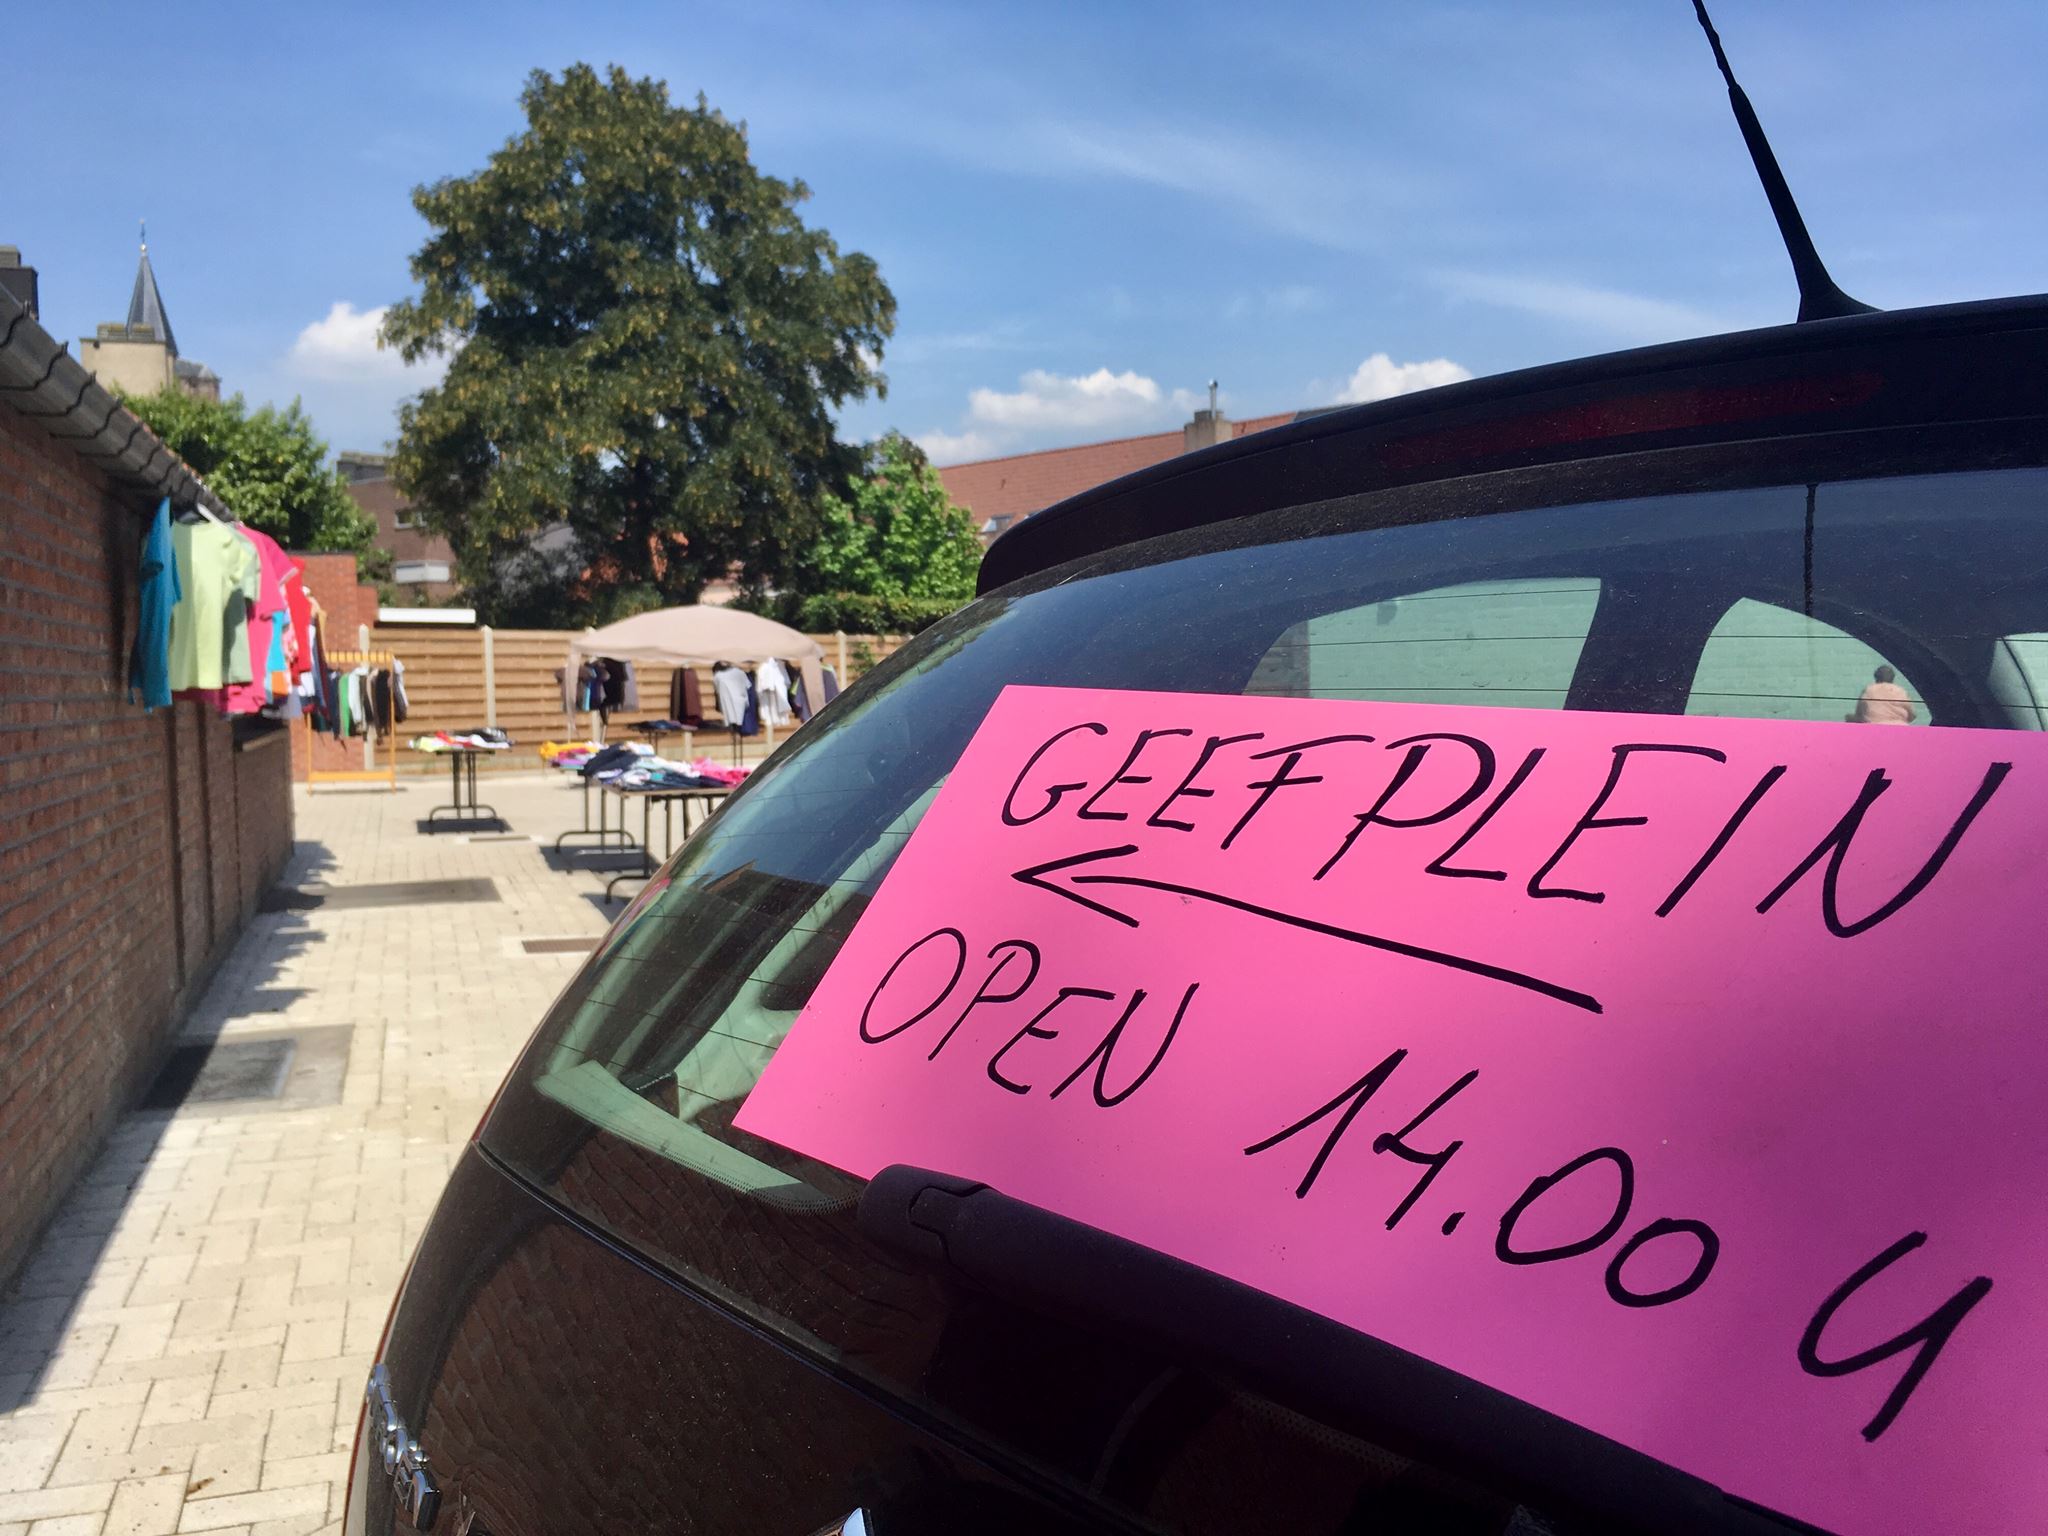 GEEFPLEIN
←
OPEN 14.00 U